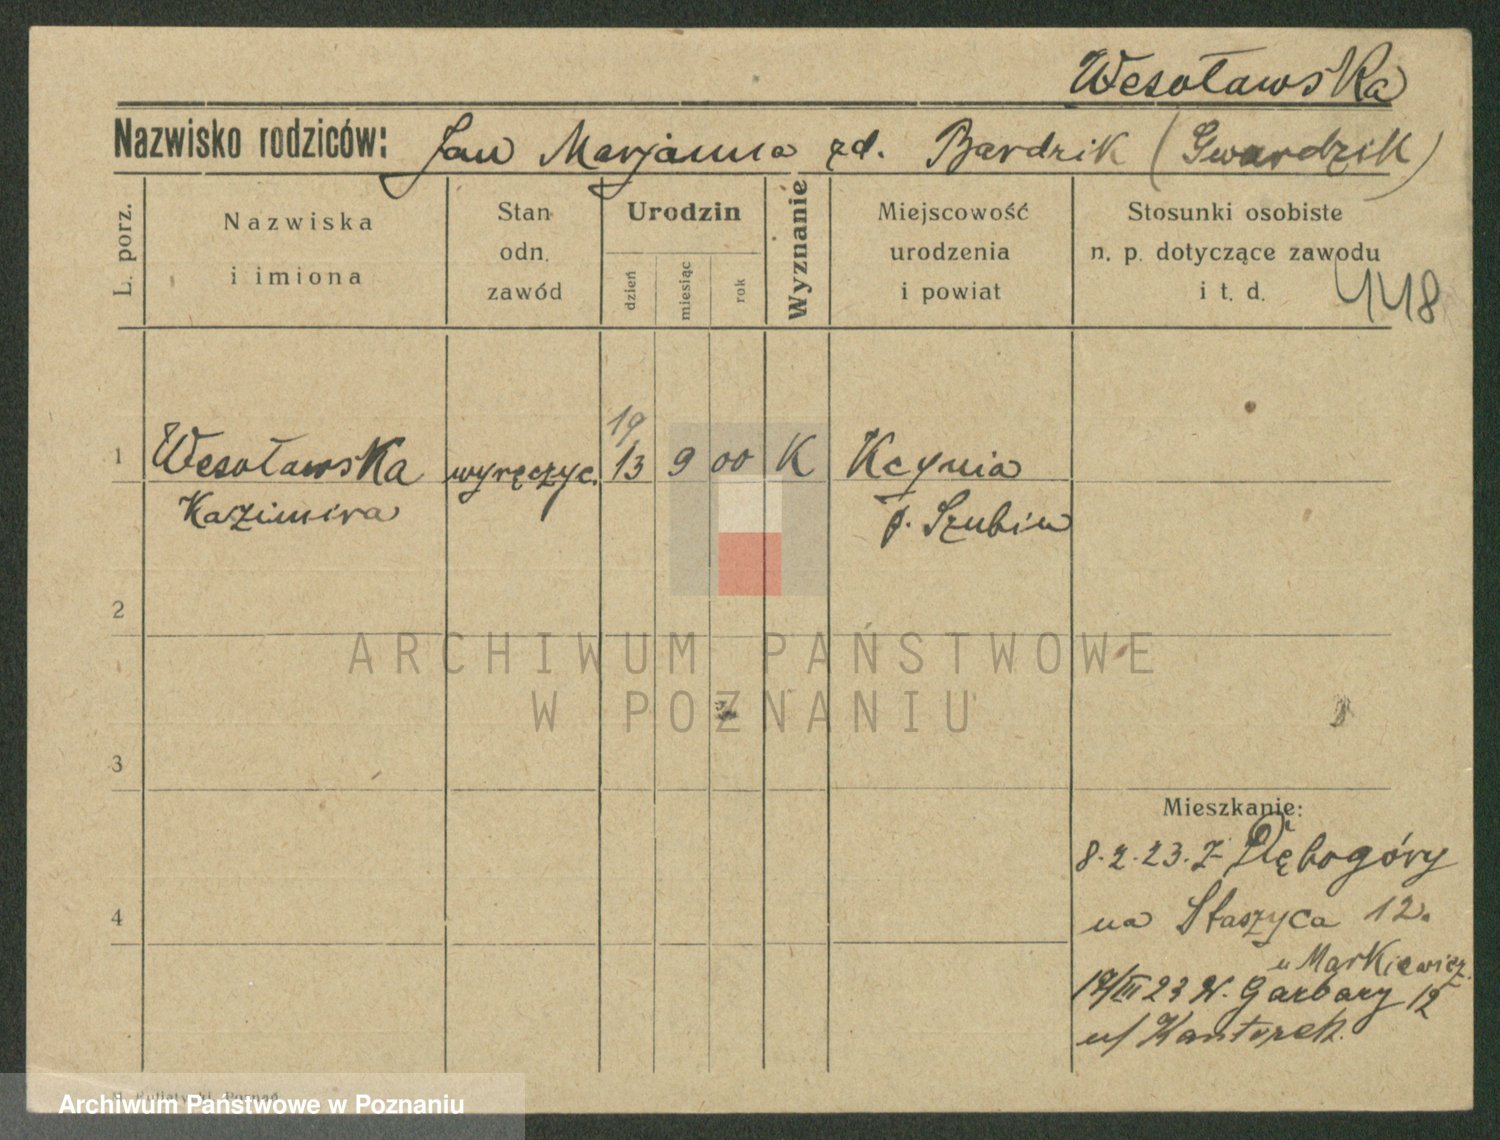 Wesoławska
Nazwisko rodziców: Jan Marjanna zd. Bardzik (Gwardzik)
L. porz.
Nazwiska
i imiona
Stan
odn.
zawód
Urodzin
dzień
miesiąc
rok
Wyznanie
Miejscowość
urodzenia
i powiat
Stosunki osobiste
n. p. dotyczące zawodu
i t. d.
448
19
1 Wesoławska wyręczyc. 13 9 00 K Kcynia
Kazimira p. Szubin
2
3
4
Mieszkanie:
8.2.23. z Dębogóry
na Staszyca 12.
u Markiewicz.
19/III 23 W. Garbary 12
u/ Kantorek.
ARCHIWUM PAŃSTWOWE
W POZNANIU
Poznań
Archiwum Państwowe w Poznaniu